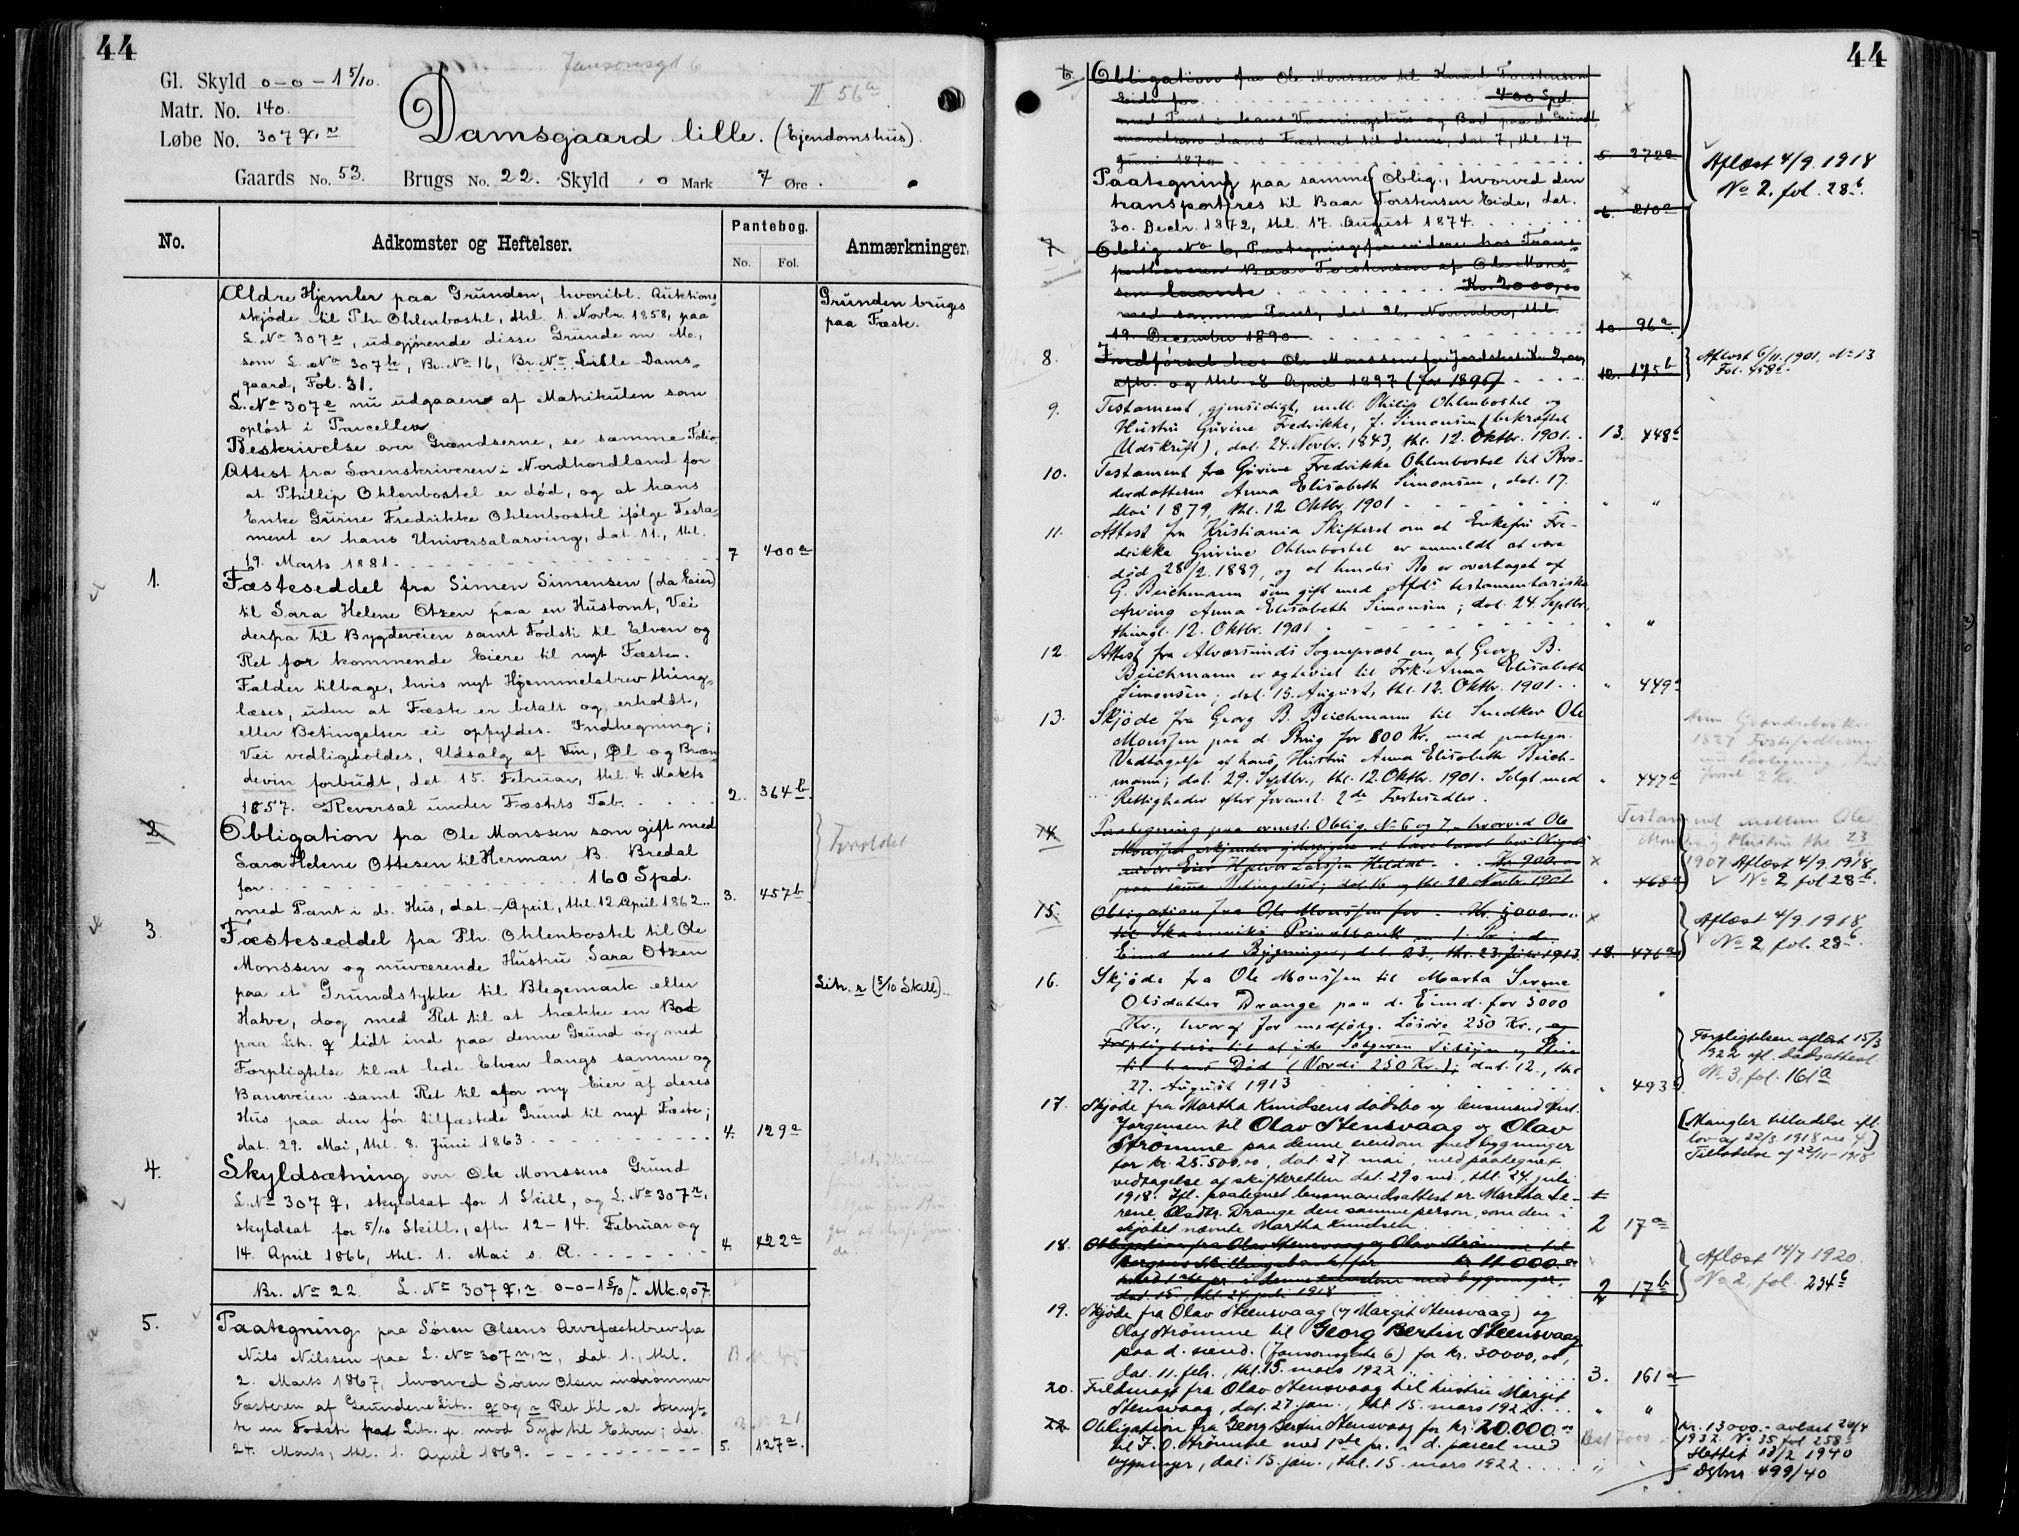 44
Jansonsgd 6
Gl. Skyld 0-0-1 5/10.
II 56a
Matr. No. 140.
Løbe No. 307 q, r
Damsgaard lille. (Ejendomshus).
Gaards No. 53. Brugs No. 22. Skyld 0 Mark 7 Øre.
No.
Adkomster og Heftelser.
Pantebog.
No. Fol.
Anmærkninger.
Ældre Hjemler paa Grunden, hvoribl. Auktions-
skjøde til Ph. Ohlenbostel, thl. 1. Novbr. 1858, paa
L. No 307e, udgjørende disse Grunde m. M.,
som L. No 307k, Br. No 16, Br. No Lille Dams-
gaard, Fol. 31.
L. No 307e nu udgaaen af Matrikulen som
opløst i Parceller
Beskrivelse over Grændserne, se samme Folio.
Attest fra Sorenskriveren i Nordhordland for
at Phillip Ohlenbostel er død, og at hans
Enke Gurine Fredrikke Ohlenbostel ifølge Testa-
ment er hans Universalarving, dat. 11., thl.
19. Marts 1881. 7 400a
Grunden bruges
paa Fæste.
1. Fæsteseddel fra Simen Simensen (da Eier)
til Sara Helene Otzen paa en Hustomt, Vei
derfra til Bygdeveien samt Fodsti til Elven og
Ret for kommende Eiere til nyt Fæste.
Falder tilbage, hvis nyt Hjemmelsbrev thing-
læses, uden at Fæste er betalt og erholdt,
eller Betingelser ei opfyldes. Indhegning;
Vei vedligeholdes, Udsalg af Vin, Øl og Bræn-
devin forbudt, dat. 15. Februar, thl. 4. Marts
1857. Reversal under Fæstets Tab. 2. 364b
2 Obligation fra Ole Monssen som gift med
Sara Helene Ottesen til Herman B. Bredal
for 160 Spd.
med Pant i d. Hus, dat. - April, thl. 12 April 1862. 3. 457b
3. Fæsteseddel fra Ph. Ohlenbostel til Ole
Monssen og nuværende Hustru Sara Otzen
paa et Grundstykke til Blegemark eller
Have, dog med Ret til at trække en Bod
paa Lit. q lidt ind paa denne Grund og med
Forpligtelse til at lede Elven langs samme og
Baneveien samt Ret til for ny Eier af deres
Hus paa den før tilfæstede Grund til nyt Fæste;
dat. 29. Mai, thl. 8. Juni 1863. 4. 129a
Litr. r (5/10 Skill).
4. Skyldsætning over Ole Monssens Grund
L. No 307 q, skyldsat for 1 Skill, og L. No 307 r,
skyldsat for 5/10 Skill., afh. 12-14. Februar og
14. April 1866, thl. 1. Mai s. A. 4. 422a
Br. No 22. L. No 307 q, r 0-0-1 5/10 Mk. 0,07
5. Paategning paa Søren Olsens Arvefæstebrev fra
Nils Nilssen paa L. No 307 m, n, dat. 1., thl.
2. Marts 1867, hvorved Søren Olsen indrømmer
Fæsteren af Grundene Litr. q og r Ret til at benyt-
te en Fodsti fra Litr. p. mod Syd til Elven; dat.
24. Marts, thl. 1. April 1869. 5. 127a.
44
6 Obligation fra Ole Monssen til Knud Torstensen
Eide for 400 Spd.
med Pant i hans Vaaningshus og Bod paa d. Grund,
juni 1870 5. 272a
Paategning paa samme Oblig., hvorved den
transportres til Baar Torstensen Eide, dat.
30. Decbr. 1872, thl. 17. August 1874. 6. 210a
Aflæst 4/9. 1918
No 2. fol. 28b.
7 Oblig. No 6, Paategning foruden hos Trans-
porthaveren Baar Torstensen af Ole Mons-
sen laante Kr. 2000,00
med samme Pant, dat. 26. November, thl.
19. December 1890 10. 96a
8. Indførsel hos Ole Monssen for Jordskat Kr. 2,00
afh. og thl. 8 April 1897 (for 1896) 12. 175b
Aflæst 6/11. 1901. No 13
Fol. 458b.
9. Testament, gjensidigt, mell. Philip Ohlenbostel og
Hustru Gurine Fredrikke, f. Simonsen (bekræftet
Udskrift), dat. 24. Novbr. 1843, thl. 12. Oktbr. 1901. 13. 448b
10. Testament fra Gurine Fredrikke Ohlenbostel til Bro-
derdatteren Anna Elisabeth Simonsen, dat. 17.
Mai 1879, thl. 12 Oktbr. 1901 " "
11. Attest fra Kristiania Skifteret om at Enkefru Fre-
drikke Gurine Ohlenbostel er anmeldt at være
død 28/2. 1889, og at hendes Bo er overtaget af
G. Beichmann som gift med Afdes testamentariske
Arving Anna Elisabeth Simonsen; dat. 24. Septbr.,
thingl. 12. Oktbr. 1901 " "
12. Attest fra Alversunds Sogneprest om, at Georg B.
Beichmann er egteviet til Frk. Anna Elisabeth
Simonsen, dat. 15. August, thl. 12. Oktbr. 1901. " 449a
13. Skjøde fra Georg B. Beichmann til Snedker Ole
Monssen paa d. Brug for 800 Kr. med paategn.
Vedtagelse af hans Hustru Anna Elisabeth Beich-
mann; dat. 29. Septbr., thl. 12. Oktbr. 1901. Solgt med
Rettigheder efter foranst. 2de Fæstesedler. " 447b
Testament mellem Ole
14 Paategning paa ovenst. Oblig. No 6 og 7, hvorved Ole
Monssen erkjender
Kr. 900,00
paa samme Betingelser; dat. 16. og thl. 20. Novbr. 1901 " 468a
1907. Aflæst 4/9. 1918.
No 2, fol. 28b.
15. Obligation fra Ole Monssen for Kr. 5000.00
til Privatbank m. 1. Pr. i d.
Eiend. med Bygninger, dat. 23., thl. 23. Juni 1913. 18. 476a
Aflæst 4/9. 1918,
No 2, fol. 28b.
16. Skjøde fra Ole Monssen til Marta Serene
Olsdatter Drange paa d. Eiend. for 5000
Kr., hvoraf for medfølg. Løsøre 250 Kr., og
Forpligtelse til at yde Sælgeren Tilsyn og Pleie
til hans Død (Værdi 250 Kr.); dat. 12., thl.
27. August 1913 " 493b
Forpligtelsen aflæst 15/3
1922 efl. dødsattest.
No 3, fol. 161a
17. Skjøde fra Martha Knudsens dødsbo og lensmand Knt.
Jørgensen til Olav Stensvaag og Olav
Strømme paa denne eiendom med bygninger
for kr. 25.500,00, dat. 27. mai, med paategnet
vedtagelse af skifteretten dat. 29. s. md., thl. 24. juli
1918. Ifl. paategnet lensmandsattest er Martha Se-
rene Olsdtr. Drange den samme person, som den i
skjøtet nævnte Martha Knudsen. 2 17a
(Mangler tilladelse efl.
lov af 22/3 1918 no 4.)
Tilladelse af 22/11-1918
18. Obligation fra Olav Stensvaag og Olav Strømme til
Bergens Skillingsbank for kr. 11000.00
med 1ste pr. i denne eiendom med bygninger,
dat. 15., thl. 24. juli 1918 2 17b
Aflæst 14/7 1920.
No 2, fol. 234b
19. Skjøde fra Olav Steensvaag (og Margit Stensvaag) og
Olaf Strømme til Georg Bertin Steensvaag
paa d. eiend. (Jansonsgate 6) for kr. 30000,00,
dat. 11. feb., thl. 15. mars 1922. 3. 161a
20. Fuldmagt fra Olav Stensvaag til hustru Margit
Stensvaag, dat. 27. jan., thl. 15. mars 1922. " "
22. Obligation fra Georg Bertin Stensvaag for kr. 20.000.00
til J. O. Strømme med 1ste pr. i d. parcel med
bygninger, dat. 15. jan., thl. 15. mars 1922.
Rest 7000
kr. 13000.- avlæst 26/4
1932 No 35 fol 258a
Slettet 13/2 1940
Dgbnr 499/40